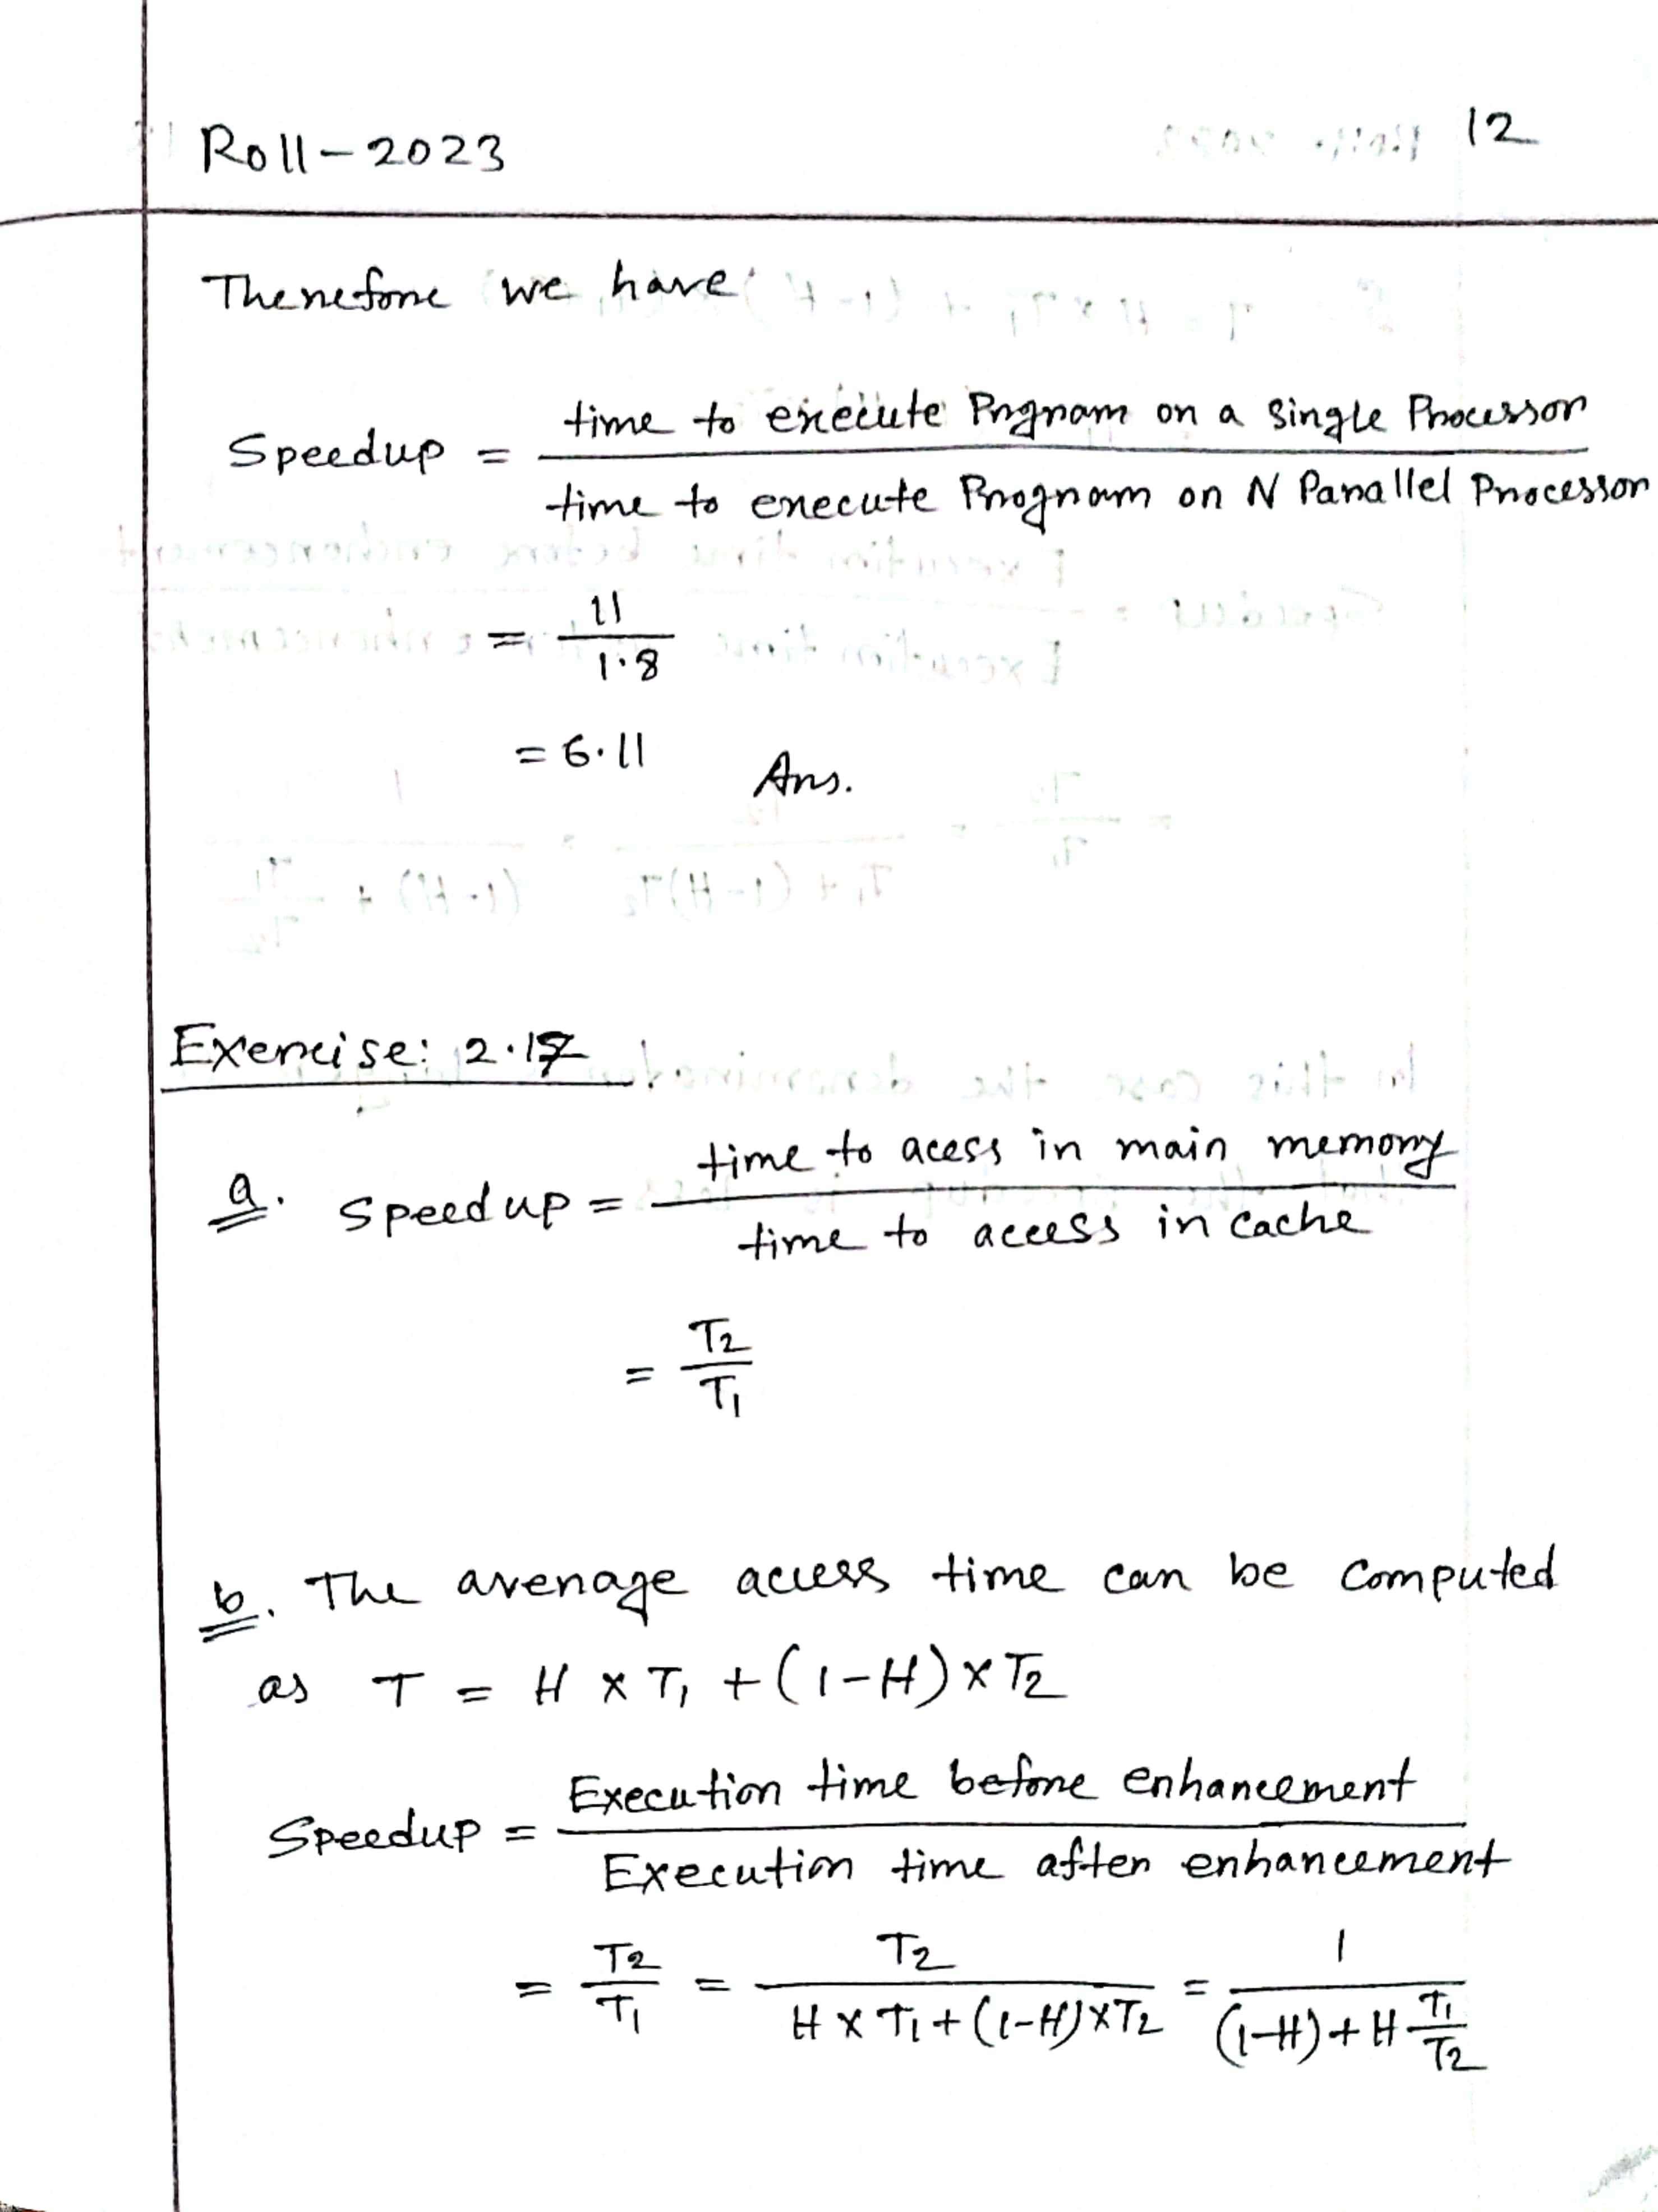 Roll-2023
12
Therefore we have
Speedup = time to execute Program on a Single Processor / time to execute Program on N Parallel Processor
= 11 / 1.8
= 6.11 Ans.
Exercise: 2.17
a. Speedup = time to acess in main memory / time to access in cache
= T2 / T1
b. The average access time can be computed
as T = H x T1 + (1-H) x T2
Speedup = Execution time before enhancement / Execution time after enhancement
= T2 / T1 = T2 / H x T1 + (1-H) x T2 = 1 / (1-H) + H T1 / T2